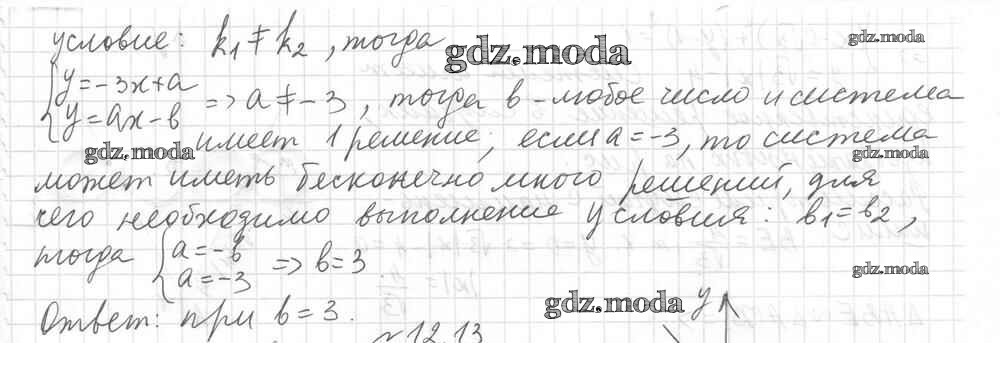 условие: k₁ ≠ k₂, тогда
gdz.moda
gdz.moda
{ y = -3x + a
{ y = ax - b
=> a ≠ -3, тогда b - любое число и система
имеет 1 решение; если a = -3, то система
gdz.moda
gdz.moda
может иметь бесконечно много решений, для
чего необходимо выполнение условия: b₁ = b₂,
тогда { a = -b
{ a = -3
=> b = 3.
gdz.moda
gdz.moda
y
Ответ: при b = 3.
№ 12.13